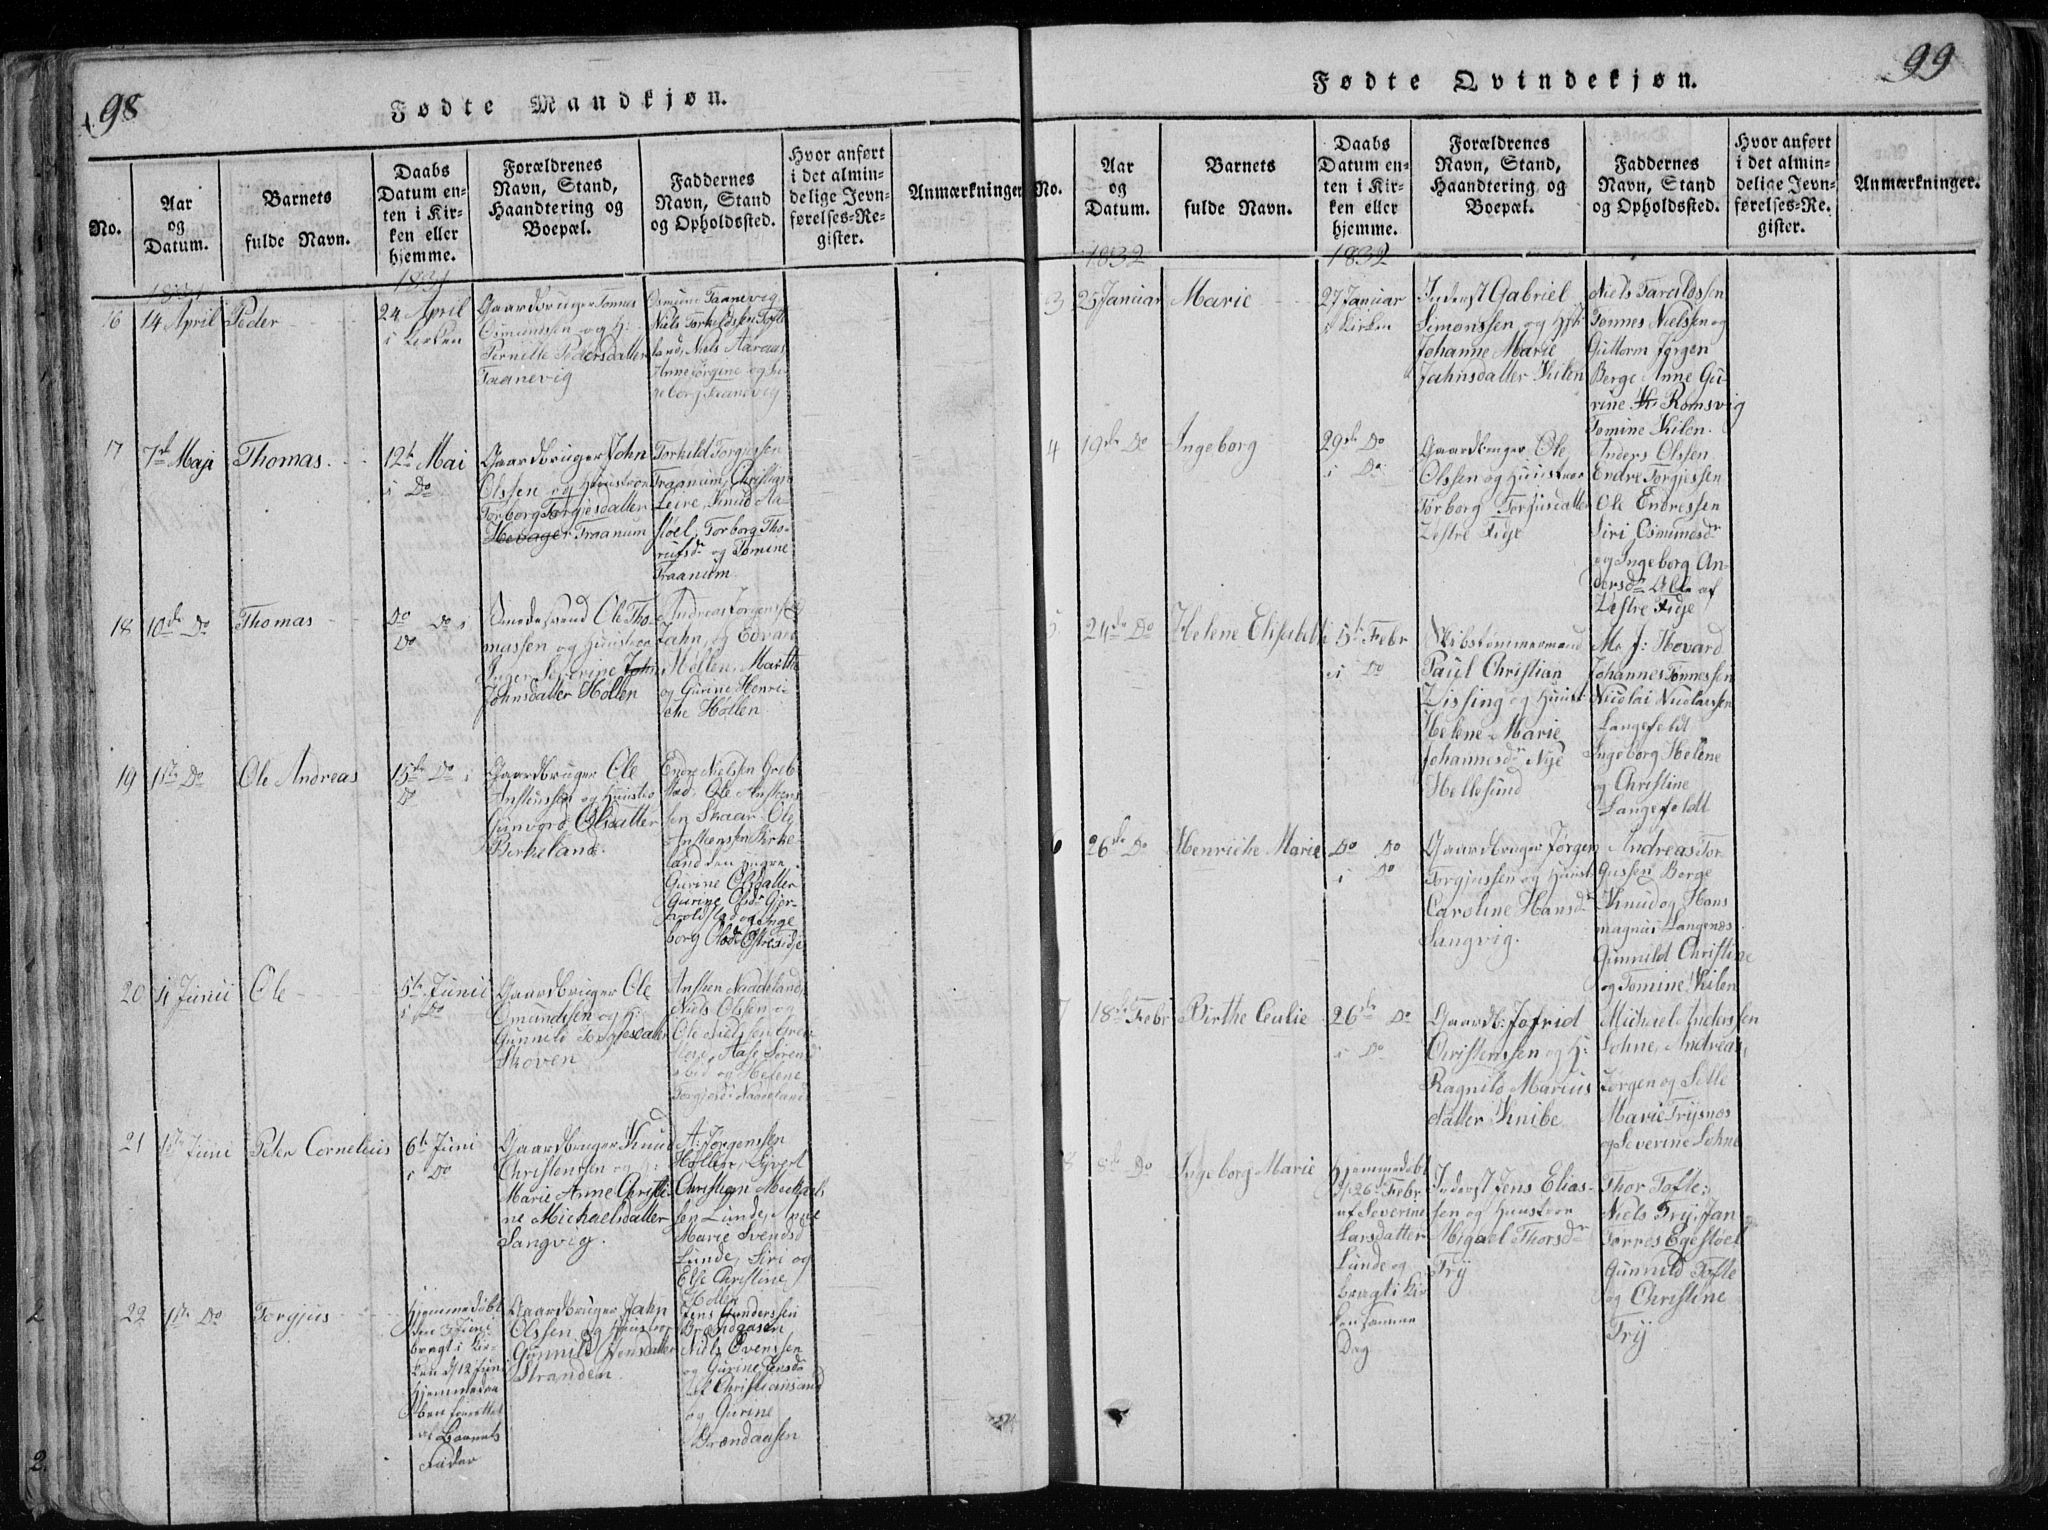 98
Fødte Mandkjøn.
No.
Aar
og
Datum.
Barnets
fulde Navn.
Daabs
Datum en-
ten i Kir-
ken eller
hjemme.
Forældrenes
Navn, Stand,
Haandtering og
Boepæl.
Faddernes
Navn, Stand
og Opholdssted.
Hvor anført
i det almin-
delige Jevn-
førelses-Re-
gister.
Anmærkninger
1831
1831
16
14 April
Peder
24 April
i Kirken
Gaardbruger Tonnes
Osmundsen og H:
Pernille Pedersdatter
Taanevig
Osmund Taanevig
Niels Torkeldsen Tofte
land, Niels Aaraas,
Anne Jørgine og In-
geborg Taanevig
17
7de Maji
Thomas.
12te Mai
i Do
Gaardbruger John
Olssen og Huustroe
Torborg Torgjesdatter
Traanum
Torkild Torgjessen
Traanum, Christian
Leire, Knud Aa-
støel, Torborg Tho-
rufsdr og Tomine
Traanum.
18
10de Do
Thomas
Do Do i
Do
Smedesvend Ole Tho-
massen og Huustroe
Inger Severine
Johnsdatter Hollen
Andreas Jørgenssen,
Jahn, og Edvard
Hollen, Marthe
og Gurine Henri-
che Hollen
19
1ste Do
Ole Andreas
15de Do i
Do
Gaardbruger Ole
Anstensen og Huustro
Gunvord Olsdatter
Birkeland.
Endre Nielsen Greb-
stad, Ole Anstens
sen Skaar, Ole
Anstensen Birke-
land den yngre,
Gurine Olsdatter
Gurine Olsdr Gjer-
voldstad og Inge
borg Olsdr Østre Eidje
20
4 Junii
Ole
5te Junii
i Do
Gaardbruger Ole
Omundsen og H:
Gunnild Torgjesdatter
Skoven
Ansten Naadeland,
Niels Olssen og
Ole Nielsen
Aase Sørens
og Helene
Torgjesdr Naadeland
21
1ste Juni
Peter Cornelius
6te Juni
i Do
Gaardbruger Knud
Christensen og H:
Marie Anne Christi-
ne Michaelsdatter
Sangvig.
A: Jørgenssen
Hollen, Sivert
Christian Michaels
sen Lunde, Anne
Marie Svendsd
Lunde, Siri og
Else Christine
Hollen
22
1ste Do
Torgjus
Hjemmedøbt
den 3 Juni
bragt i Kir-
ken d/12 Juni
Hjemmedaa
ben forrettet
af Barnets
Fader
Gaardbruger Jahn
Olssen og Huustroe
Gunnild Jensdatter
Stranden
Jens Anderssen
Brændaasen
Niels Evenssen
og Gurine Jensdr
af Christiansand
og Gurine
Brændaasen
99
Fødte Qvindekjøn.
No.
Aar
og
Datum.
Barnets
fulde Navn.
Daabs
Datum en-
ten i Kir-
ken eller
hjemme.
Forældrenes
Navn, Stand,
Haandtering og
Boepæl.
Faddernes
Navn, Stand
og Opholdssted.
Hvor anført
i det almin-
delige Jevn-
førelses-Re-
gister.
Anmærkninger.
1832
1832
3
25 Januar
Marie
27 Januar
i Kirken
Inderst Gabriel
Simonssen og Hst
Johanne Marie
Jahnsdatter Kilen
Niels Taraldssen
Tonnes Nielsen og
Guttorm Jørgen
Berge Anne Gu-
rine Romsvig
Tomine Kilen.
4
19de Do
Ingeborg
29de Do
i Do
Gaardbruger Ole
Olssen og Huustroe
Torborg Torgiusdatter
Vestre Eidje
Anders Olssen
Endre Torgjessen
Ole Endressen
Siri Osmundsdr
og Ingeborg An-
dersdr Alle af
Vestre Eidje
5
24de Do
Helene Elisabeth
5te Febr
i Do
Skibstømmermand
Paul Christian
Zissing og Huust:
Helene Marie
Johannesdr Nye
Hellesund
Mr J: Hovard
Johannes Tonnessen
Nicolai Nicolaissen
Langefeldt
Ingeborg Helene
og Christine
Langefeldt
6
26de Do
Henriche Marie
Do Do
i Do
Gaardbruger Jørgen
Torgjussen og Huust:
Caroline Hansdr
Sangvig.
Andreas Tor
Gussen Berge
Knud og Hans
magnus Langenæs
Gunnild Christine
og Tomine Kilen
7
18de Febr
Birthe Cecilie
26de Do
i Do
Gaardb: Jofrid
Christenssen og H:
Ragnild Marius
datter Knibe
Michael Anderssen
Lohne, Andreas,
Jørgen og Sille
Marie Trysnes
og Severine Lohne
8
8de Do
Ingeborg Marie
Hjemmedøbt
d/26de Febr
af Severine
Larsdatter
Lunde og
bragt i Kir
ken samme
Dag
Inderst Jens Elias-
sen og Huustroe
Migael Thorsdr
Try
Thor Tofte,
Niels Try, Jan
Torres Egestøel
Gunnild Tofte
og Christine
Try
2
2.